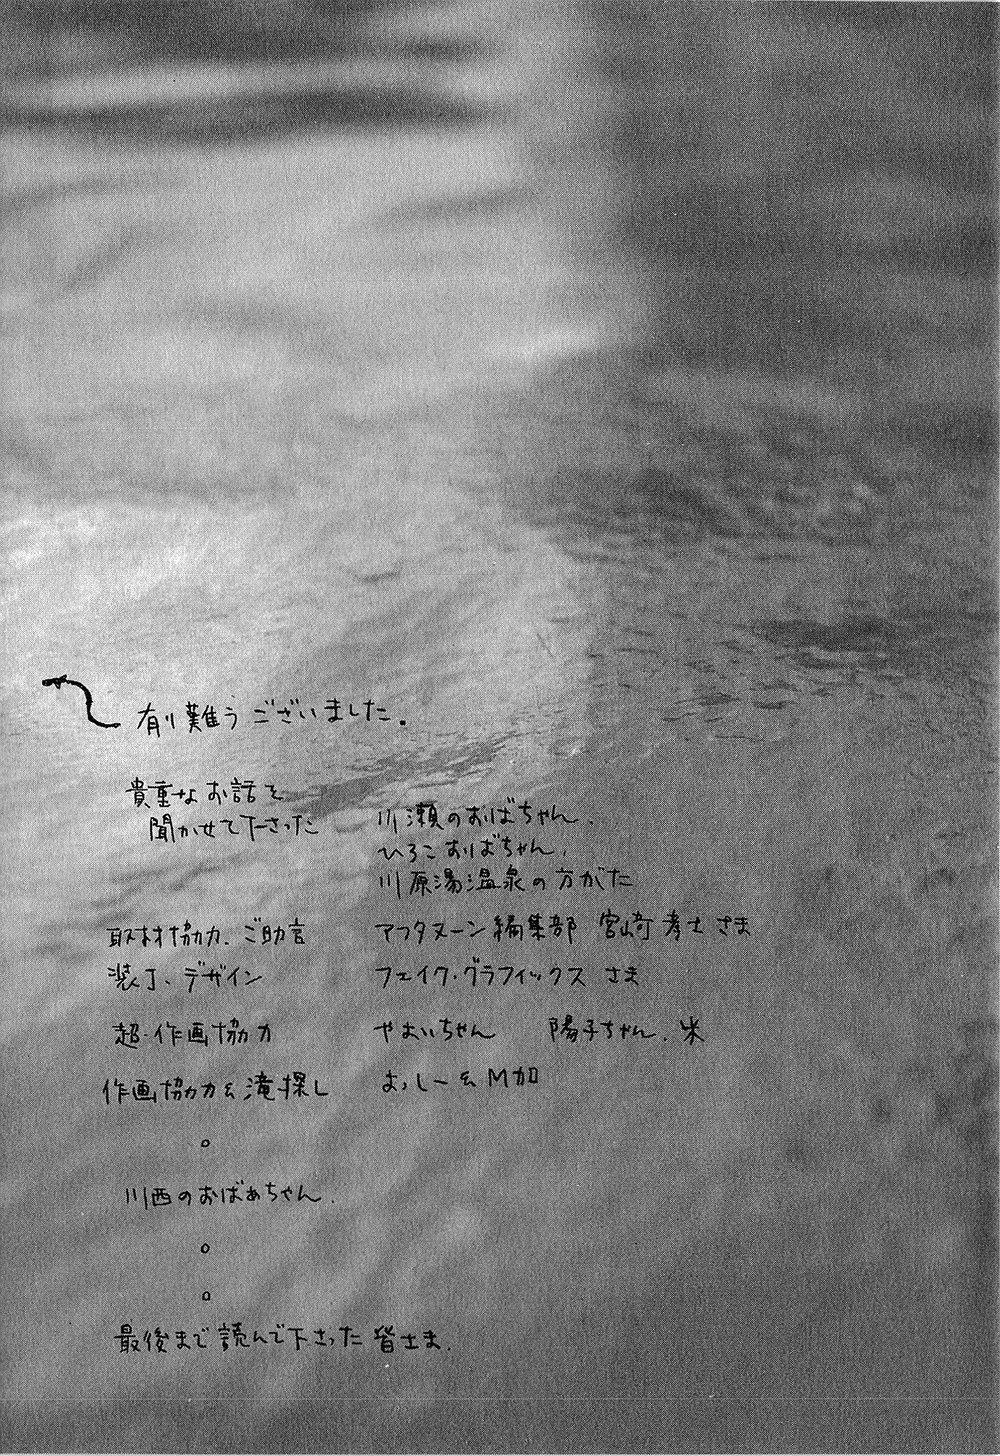 有り難うございました。
貴重なお話を
聞かせて下さった
川瀬のおばちゃん、
ひろこおばちゃん、
川原湯温泉の方がた
取材協力、ご助言 アフタヌーン編集部 宮崎孝士さま
装丁、デザイン フェイク・グラフィックス さま
超・作画協力 やよいちゃん 陽子ちゃん、米
作画協力&滝探し よっしー&M加
川西のおばあちゃん、
最後まで読んで下さった皆さま、